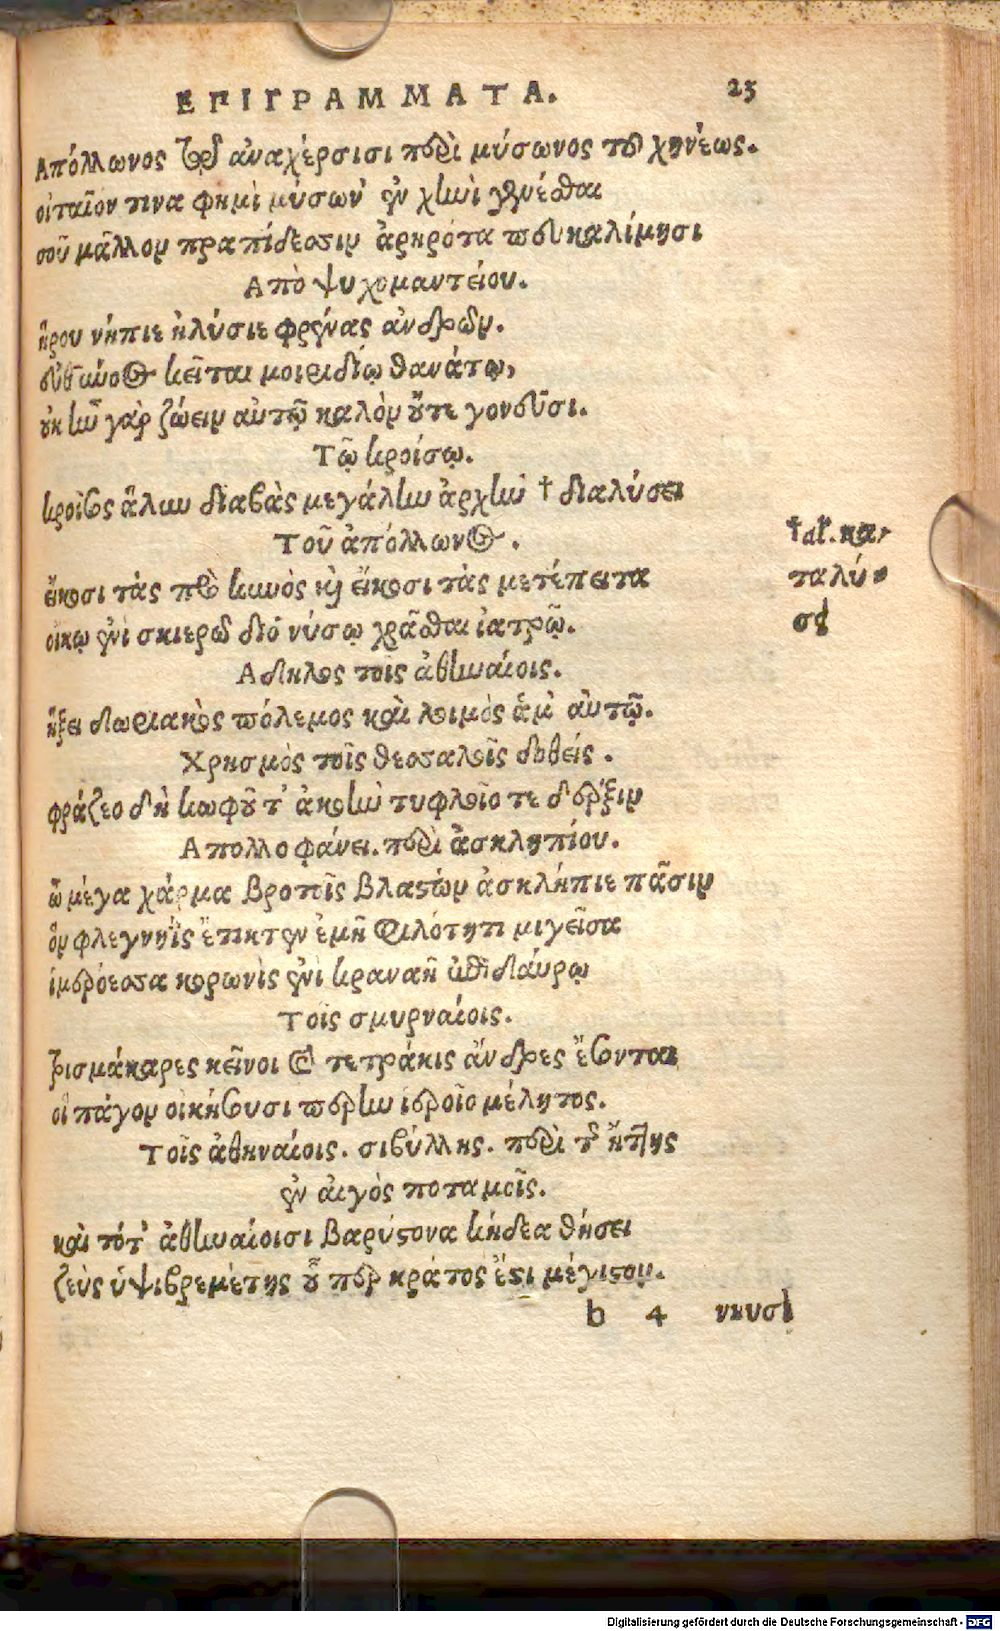 ΕΠΙΓΡΑΜΜΑΤΑ. 25
Απόλλωνος τῷ ἀναχέρσισι περὶ μύσωνος του χηνέως.
οἰταῖον τινα φημὶ μύσων' ἐν χηνὶ γενέσθαι
σοῦ μᾶλλον πραπίδεσσιν ἀρηρότα πευκαλίμησι
Απὸ ψυχομαντείου.
ἤρου νήπιε ἠλύσιε φρένας ἀνδρῶν.
εὐθύνοος κεῖται μοιριδίῳ θανάτῳ,
οὐκ ἦν γὰρ ζώειν αὐτῷ καλὸν οὔτε γονεῦσι.
Τῷ κροίσῳ.
κροῖσος ἅλυν διαβὰς μεγάλην ἀρχὴν † διαλύσει
Τοῦ ἀπόλλωνος.
†al. κα-
εἴκοσι τὰς πρὸ κυνὸς καὶ εἴκοσι τὰς μετέπειτα
ταλύ-
οἴκῳ ἐνὶ σκιερῷ διονύσῳ χρᾶσθαι ἰατρῷ.
σει
Αδηλος τοῖς ἀθηναίοις.
ἥξει δωριακὸς πόλεμος καὶ λοιμὸς ἅμ' αὐτῷ.
Χρησμὸς τοῖς θεσσαλοῖς δοθείς.
φράζεο δὴ κωφοῦ τ' ἀκοὴν τυφλοῖο τε δέρξιν
Απολλοφάνει. περὶ ἀσκληπίου.
ὦ μέγα χάρμα βροτοῖς βλαστὼν ἀσκλήπιε πᾶσιν
ὃν φλεγυηῒς ἔτικτεν ἐμῇ φιλότητι μιγεῖσα
ἱμερόεσσα κορωνὶς ἐνὶ κραναῇ ἐπιδαύρῳ
Τοῖς σμυρναίοις.
τρισμάκαρες κεῖνοι καὶ τετράκις ἄνδρες ἔσονται
οἳ πάγον οἰκήσουσι πέρην ἱεροῖο μέλητος.
Τοῖς ἀθηναίοις. σιβύλλης. περὶ τῆς ἥττης
ἐν αἰγὸς ποταμοῖς.
καὶ τότ' ἀθηναίοισι βαρύστονα κήδεα θήσει
ζεὺς ὑψιβρεμέτης οὗ περ κράτος ἐστὶ μέγιστον.
b 4 νηυσὶ
Digitalisierung gefördert durch die Deutsche Forschungsgemeinschaft - DFG